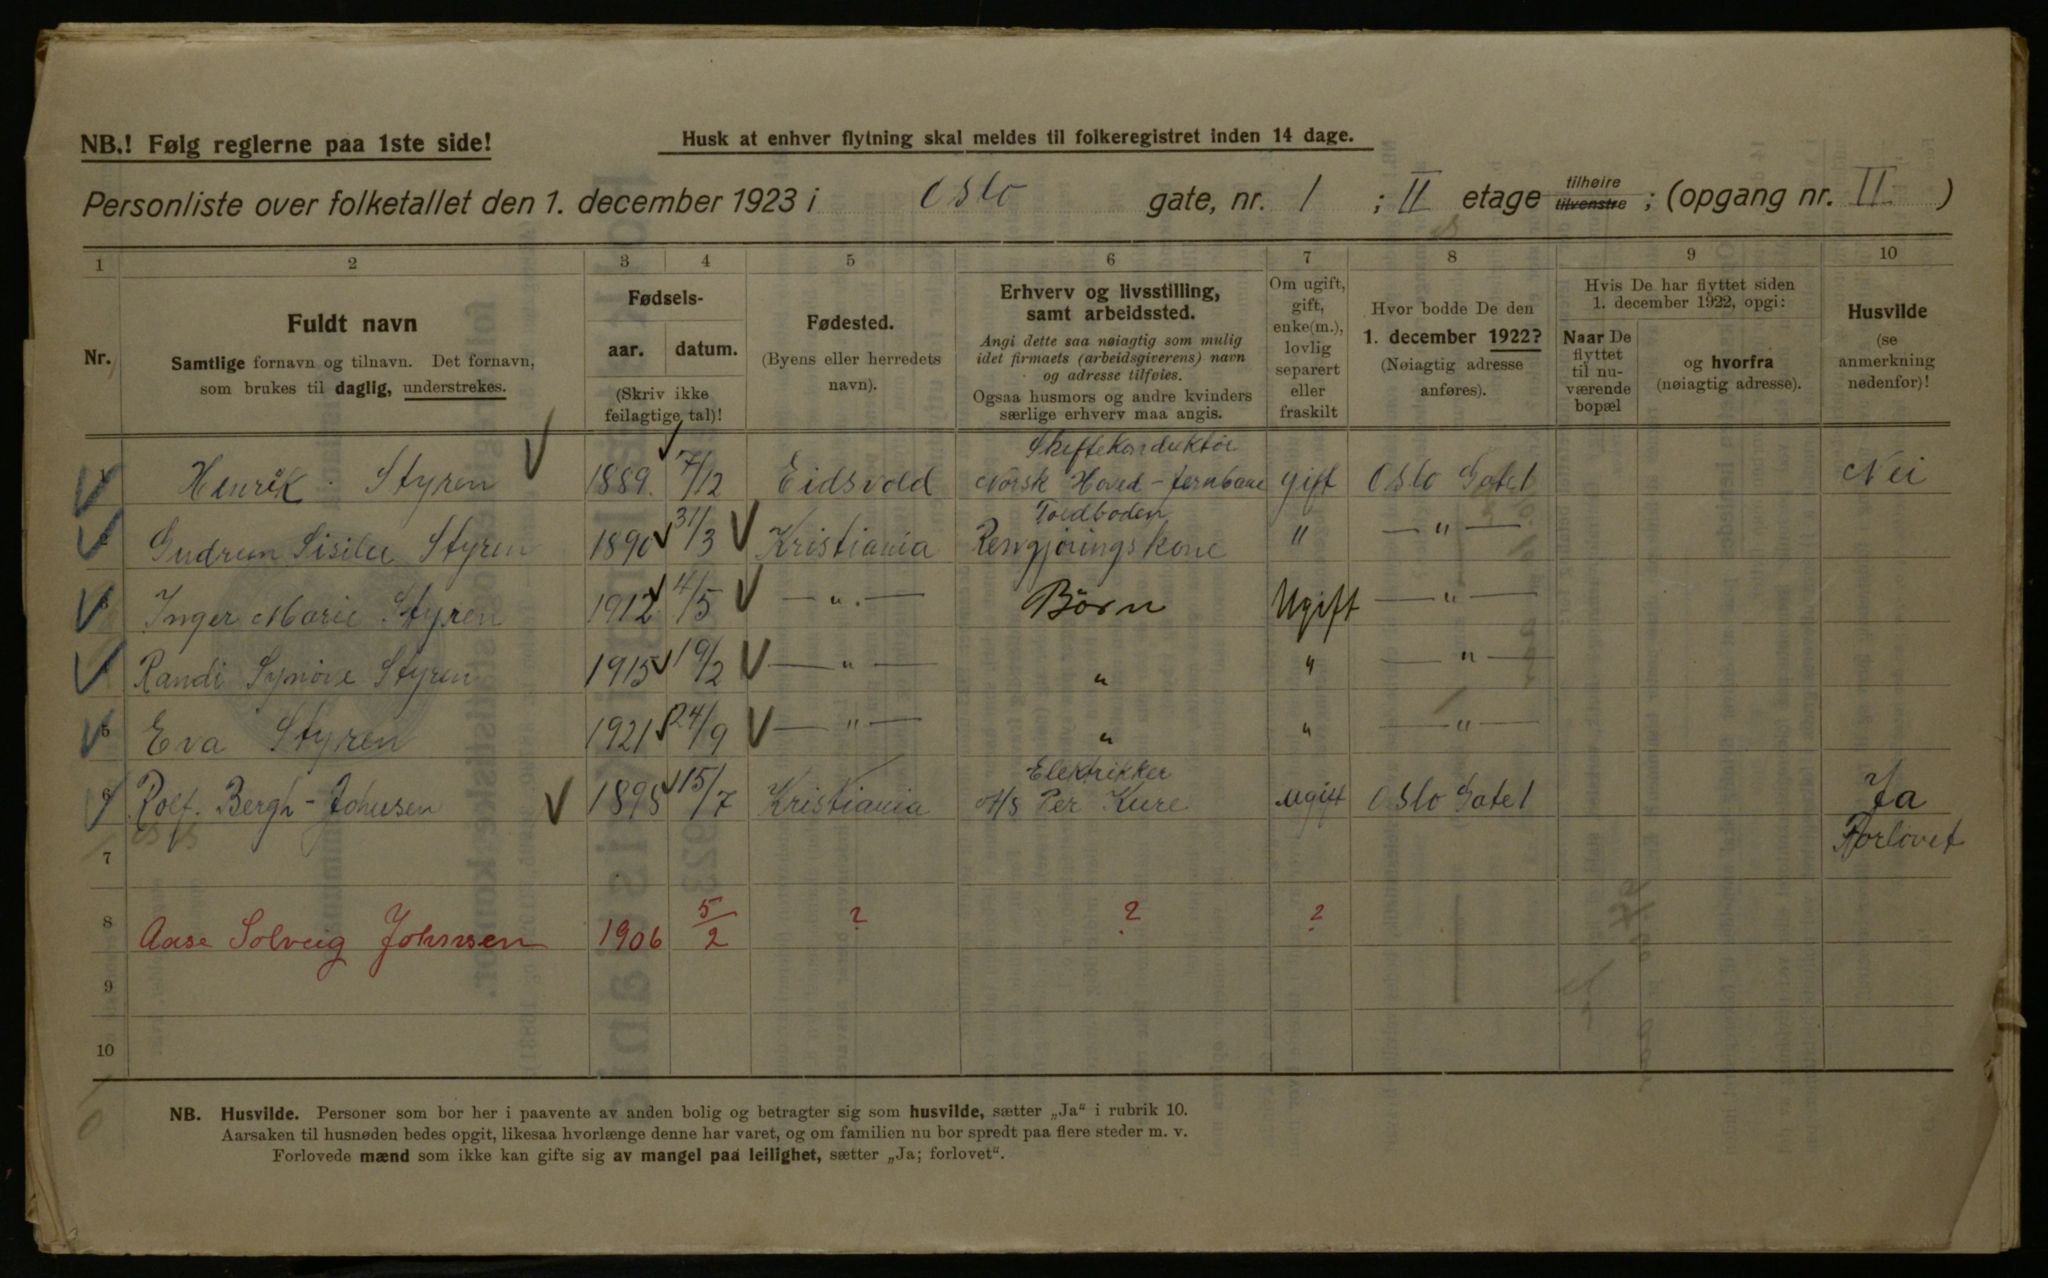 NB.! Følg reglerne paa 1ste side!
Husk at enhver flytning skal meldes til folkeregistret inden 14 dage.
Personliste over folketallet den 1. december 1923 i Oslo gate, nr. 1 ; II etage tilhøire tilvenstre ; (opgang nr. II )
1 2 3 4 5 6 7 8 9 10
Nr.
Fuldt navn
Samtlige fornavn og tilnavn. Det fornavn,
som brukes til daglig, understrekes.
Fødsels-
aar. datum.
(Skriv ikke
feilagtige tal)!
Fødested.
(Byens eller herredets
navn).
Erhverv og livsstilling,
samt arbeidssted.
Angi dette saa nøiagtig som mulig
idet firmaets (arbeidsgiverens) navn
og adresse tilføies.
Ogsaa husmors og andre kvinders
særlige erhverv maa angis.
Om ugift,
gift,
enke(m.),
lovlig
separert
eller
fraskilt
Hvor bodde De den
1. december 1922?
(Nøiagtig adresse
anføres).
Hvis De har flyttet siden
1. december 1922, opgi:
Naar De
flyttet
til nu-
værende
bopæl
og hvorfra
(nøiagtig adresse).
Husvilde
(se
anmerkning
nedenfor)!
Skiftekonduktør
1 Henrik Styren 1889. 7/12 Eidsvold Norsk Hoved-Jernbane gift Oslo Gate 1 Nei
Toldboden
2 Gudrun Sisilie Styren 1890 31/3 Kristiania Rengjøringskone " — " —
3 Inger Marie Styren 1912 4/5 — " — Børn Ugift — " —
4 Randi Synøve Styren 1915 19/2 — " — " " — " —
5 Eva Styren 1921 24/9 — " — " " — " —
Elektrikker
6 Rolf. Bergh-Johnsen 1898 15/7 Kristiania A/S Per Kure ugift Oslo Gate 1 Ja
7 Forlovet
8 Aase Solveig Johnsen 1906 5/2 ? ? ?
9
10
NB. Husvilde. Personer som bor her i paavente av anden bolig og betragter sig som husvilde, sætter „Ja" i rubrik 10.
Aarsaken til husnøden bedes opgit, likesaa hvorlænge denne har varet, og om familien nu bor spredt paa flere steder m. v.
Forlovede mænd som ikke kan gifte sig av mangel paa leilighet, sætter „Ja; forlovet".